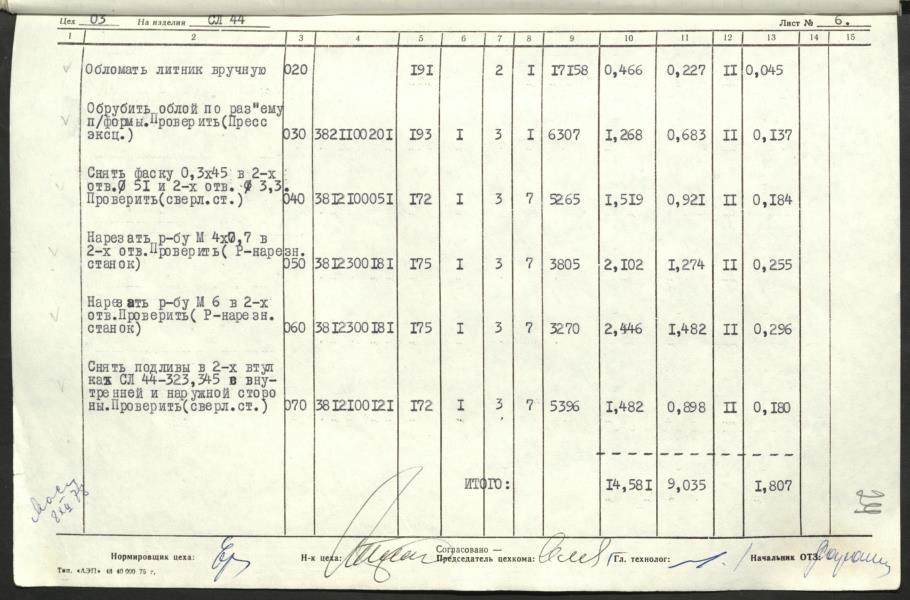 Цех 03 На изделия СЛ 44 Лист № 6.
1 2 3 4 5 6 7 8 9 10 11 12 13 14 15
Обломать литник вручную 020 I9I 2 I I7I58 0,466 0,227 II 0,045
Обрубить облой по раз"ему
п/формы.Проверить(Пресс
эксц.) 030 382II0020I I93 I 3 I 6307 I,268 0,683 II 0,137
Снять фаску 0,3х45 в 2-х
отв.Ø 5I и 2-х отв. Ø 3,3.
Проверить(сверл.ст.) 040 38I2I0005I I72 I 3 7 5265 I,5I9 0,92I II 0,184
Нарезать р-бу М 4х0,7 в
2-х отв.Проверить( Р-нарезн.
станок) 050 38I2300I8I I75 I 3 7 3805 2,I02 I,274 II 0,255
Нарезать р-бу М 6 в 2-х
отв.Проверить( Р-нарезн.
станок) 060 38I2300I8I I75 I 3 7 3270 2,446 I,482 II 0,296
Снять подливы в 2-х втул
как СЛ 44-323,345 в вну-
тренней и наружной сторо
ны.Проверить(сверл.ст.) 070 38I2I00I2I I72 I 3 7 5396 I,482 0,898 II 0,180
ИТОГО: I4,58I 9,035 I,807
24
Согласовано —
Нормировщик цеха: Н-к цеха: Председатель цехкома: Гл. технолог: Начальник ОТЗ:
Тип. «АЭП» 48 40 000 75 г.